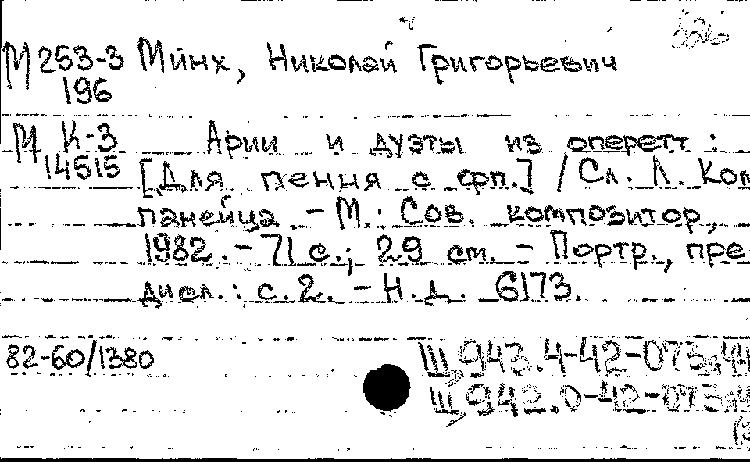 М 253-3 Минх, Николай Григорьевич
196
М К-3 Арии и дуэты из оперетт :
14515 [Для пения с фп.] / Сл. Л. Ком
панейца. - М.: Сов. композитор,
1982. - 71 с.; 29 см. - Портр., пре
дисл.: с. 2. - Н.д. 6173.
82-60/1380 Щ943.4-42-073.44
Щ942.0-42-073